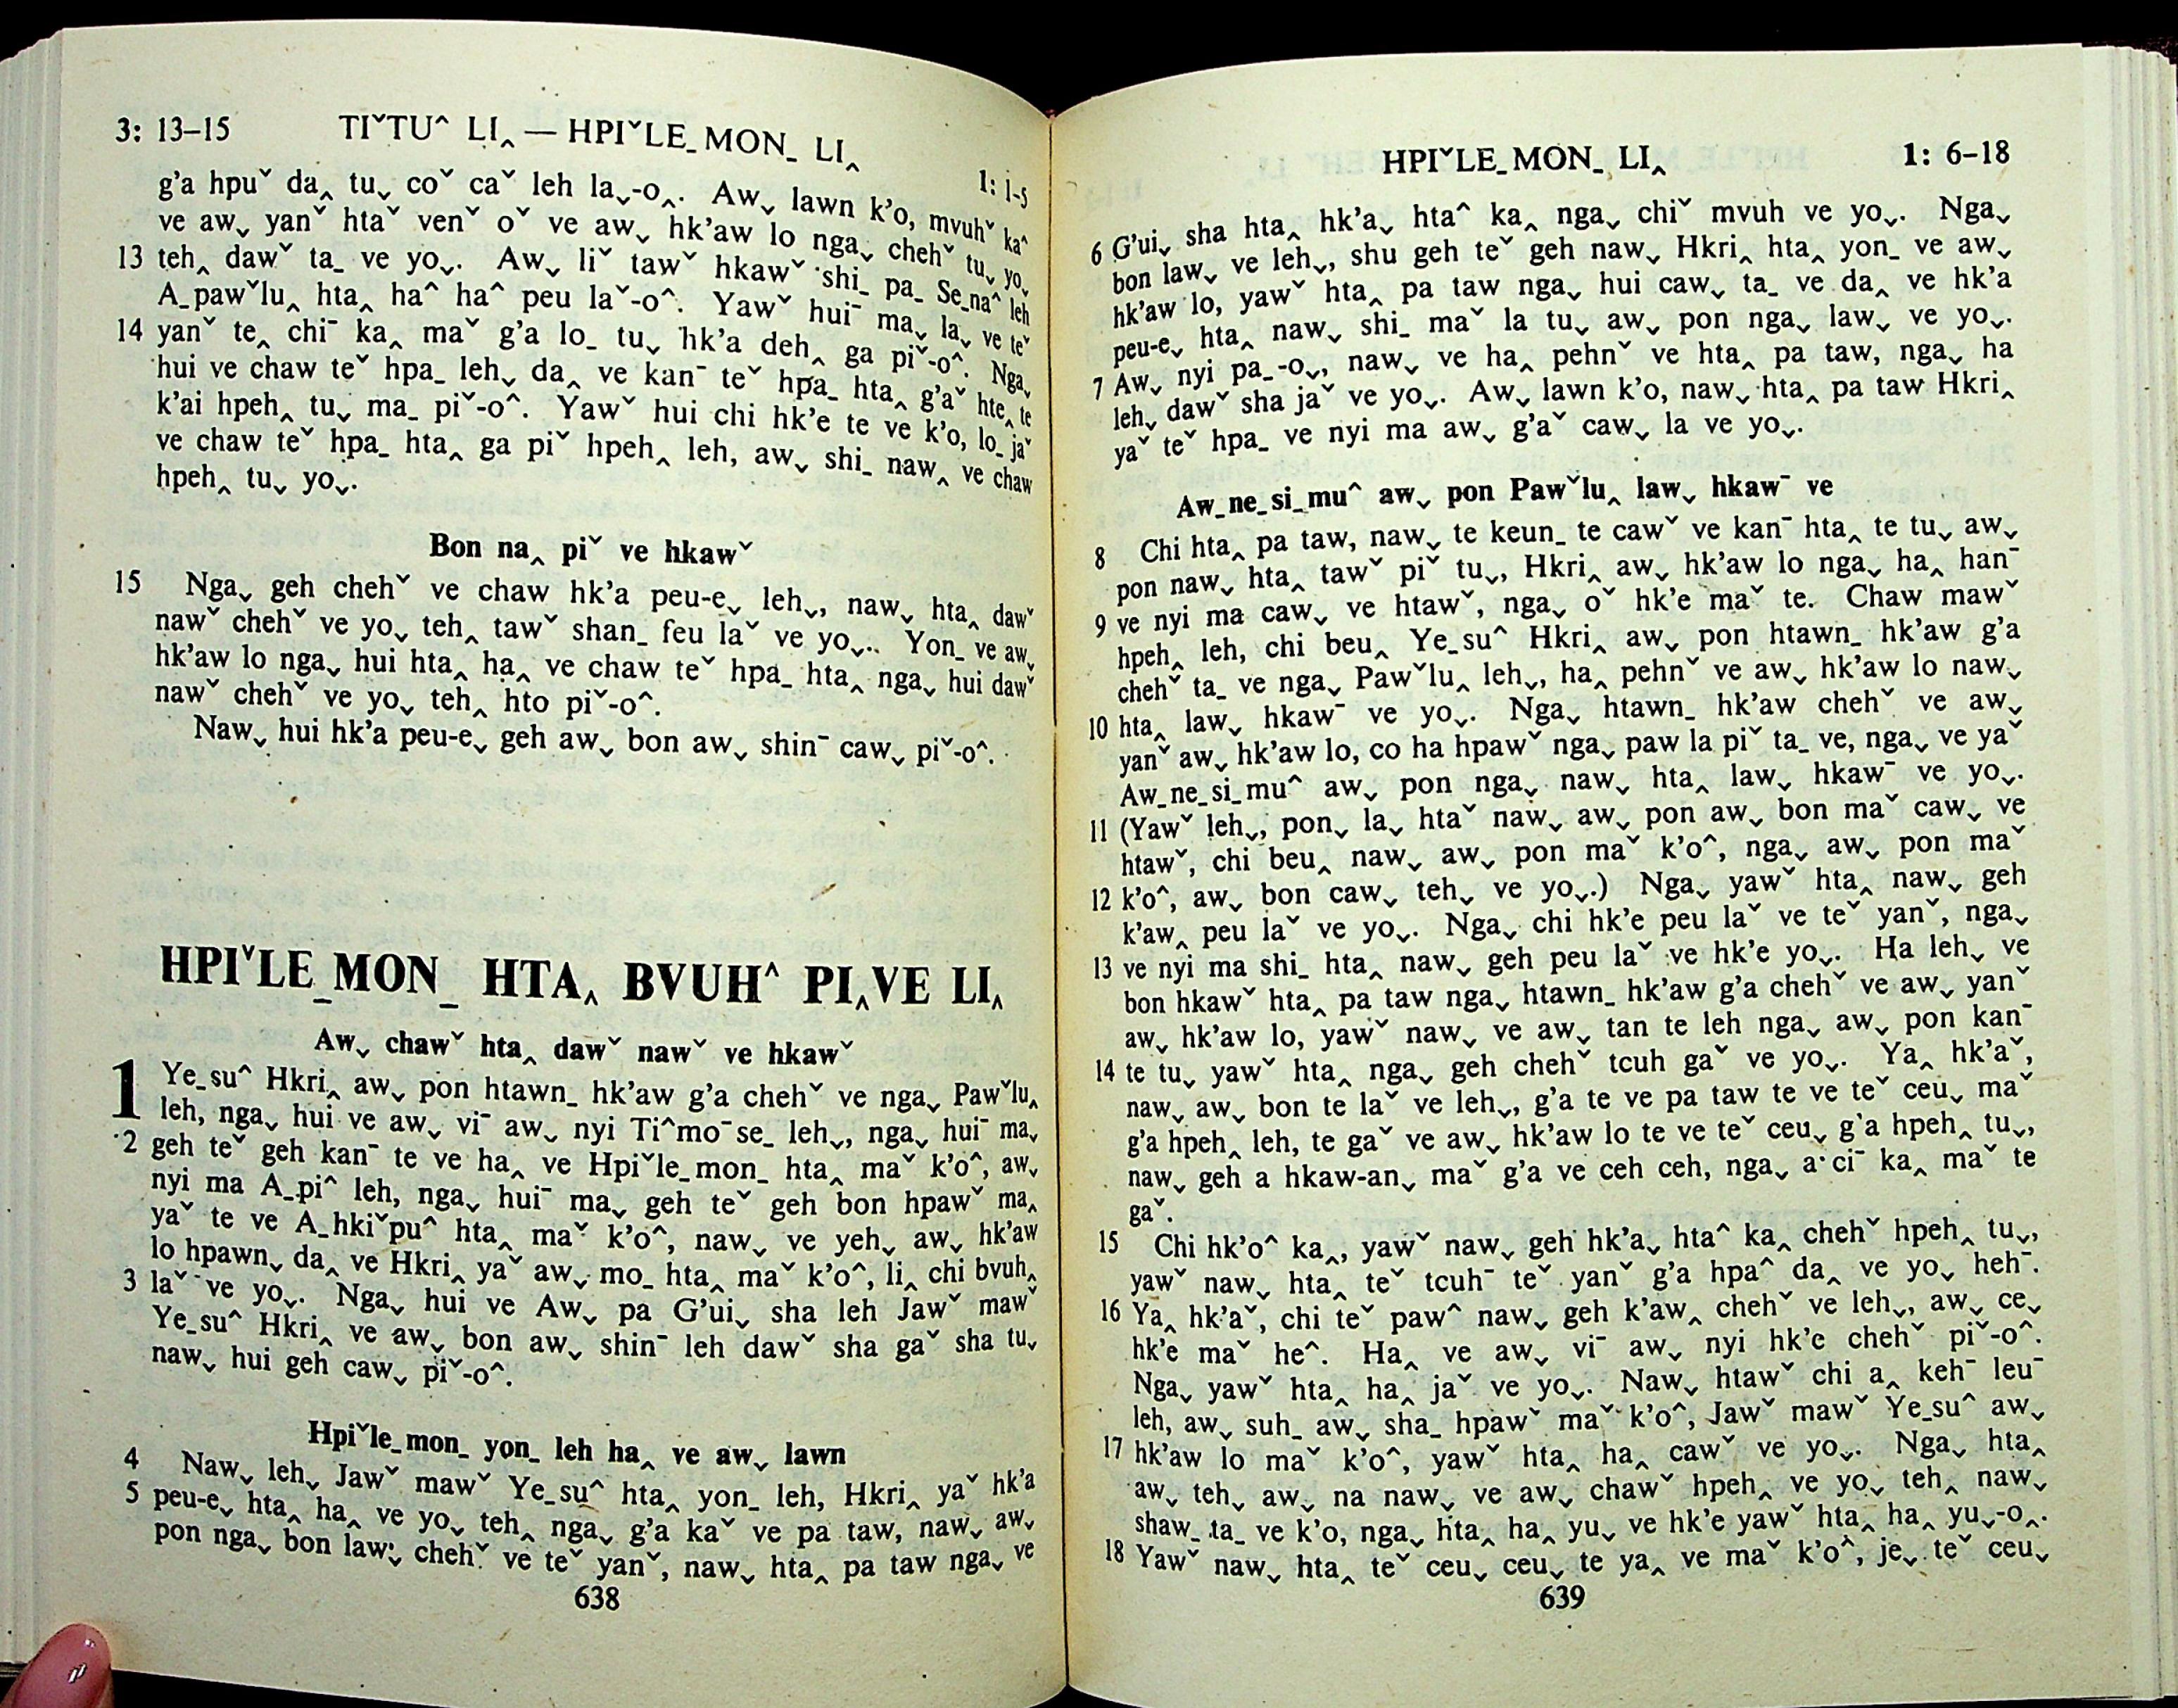 3: 13–15 TIˇTU^ LI‸ — HPIˇLE_MON_ LI‸ 1: 1-5
g’a hpuˇ da‸ tuˬ coˇ caˇ leh laˬ-o‸. Awˬ lawn k’o, mvuhˇ ka^
ve awˬ yanˇ htaˇ venˇ oˇ ve awˬ hk’aw lo ngaˬ chehˇ tuˬ yoˬ
13 teh‸ dawˇ ta_ ve yoˬ. Awˬ liˇ tawˇ hkawˇ shi_ pa_ Se_na^ leh
A_pawˇlu‸ hta‸ ha^ ha^ peu laˇ-o^. Yawˇ huiˉ maˬ laˬ ve teˇ
14 yanˇ te‸ chiˉ ka‸ maˇ g’a lo_ tuˬ hk’a deh‸ ga piˇ-o^. Ngaˬ
hui ve chaw teˇ hpa_ lehˬ da‸ ve kanˉ teˇ hpa_ hta‸ g’aˇ hte‸ te
k’ai hpeh‸ tuˬ ma_ piˇ-o^. Yawˇ hui chi hk’e te ve k’o, lo_ jaˇ
ve chaw teˇ hpa_ hta‸ ga piˇ hpeh‸ leh, awˬ shi_ naw‸ ve chaw
hpeh‸ tuˬ yoˬ.
Bon na‸ piˇ ve hkawˇ
15 Ngaˬ geh chehˇ ve chaw hk’a peu-eˬ lehˬ, nawˬ hta‸ dawˇ
nawˇ chehˇ ve yoˬ teh‸ tawˇ shan_ feu laˇ ve yoˬ. Yon_ ve awˬ
hk’aw lo ngaˬ hui hta‸ ha‸ ve chaw teˇ hpa_ hta‸ ngaˬ hui dawˇ
nawˇ chehˇ ve yoˬ teh‸ hto piˇ-o^.
Nawˬ hui hk’a peu-eˬ geh awˬ bon awˬ shinˉ cawˬ piˇ-o^.
HPIˇLE_MON_ HTA‸ BVUH^ PI‸VE LI‸
Awˬ chawˇ hta‸ dawˇ nawˇ ve hkawˇ
1 Ye_su^ Hkri‸ awˬ pon htawn_ hk’aw g’a chehˇ ve ngaˬ Pawˇlu‸
leh, ngaˬ hui ve awˬ viˉ awˬ nyi Ti^moˉse_ lehˬ, ngaˬ huiˉ maˬ
2 geh teˇ geh kanˉ te ve ha‸ ve Hpiˇle_mon_ hta‸ maˇ k’o^, awˬ
nyi ma A_pi^ leh, ngaˬ huiˉ maˬ geh teˇ geh bon hpawˇ ma‸
yaˇ te ve A_hkiˇpu^ hta‸ maˇ k’o^, nawˬ ve yehˬ awˬ hk’aw
lo hpawnˬ daˬ ve Hkri‸ yaˇ awˬ mo_ hta‸ maˇ k’o^, li‸ chi bvuh‸
3 laˇ ve yoˬ. Ngaˬ hui ve Awˬ pa G’uiˬ sha leh Jawˇ mawˇ
Ye_su^ Hkri‸ ve awˬ bon awˬ shinˉ leh dawˇ sha gaˇ sha tuˬ
nawˬ hui geh cawˬ piˇ-o^.
Hpiˇle_mon_ yon_ leh ha‸ ve awˬ lawn
4 Nawˬ lehˬ Jawˇ mawˇ Ye_su^ hta‸ yon_ leh, Hkri‸ yaˇ hk’a
5 peu-eˬ hta‸ ha‸ ve yoˬ teh‸ ngaˬ g’a kaˇ ve pa taw, nawˬ awˬ
pon ngaˬ bon lawˬ chehˇ ve teˇ yanˇ, nawˬ hta‸ pa taw ngaˬ ve
638
HPIˇLE_MON_ LI‸ 1: 6–18
6 G’uiˬ sha hta‸ hk’aˬ hta^ ka‸ ngaˬ chiˇ mvuh ve yoˬ. Ngaˬ
bon lawˬ ve lehˬ, shu geh teˇ geh nawˬ Hkri‸ hta‸ yon_ ve awˬ
hk’aw lo, yawˇ hta‸ pa taw ngaˬ hui cawˬ ta_ ve da‸ ve hk’a
peu-eˬ hta‸ nawˬ shi_ maˇ la tuˬ awˬ pon ngaˬ lawˬ ve yoˬ.
7 Awˬ nyi pa_-oˬ, nawˬ ve ha‸ pehnˇ ve hta‸ pa taw, ngaˬ ha
lehˬ dawˇ sha jaˇ ve yoˬ. Awˬ lawn k’o, nawˬ hta‸ pa taw Hkri‸
yaˇ teˇ hpa_ ve nyi ma awˬ g’aˇ cawˬ la ve yoˬ.
Aw_ne_si_mu^ awˬ pon Pawˇlu‸ lawˬ hkawˉ ve
8 Chi hta‸ pa taw, nawˬ te keun_ te cawˇ ve kanˉ hta‸ te tuˬ awˬ
pon nawˬ hta‸ tawˇ piˇ tuˬ, Hkri‸ awˬ hk’aw lo ngaˬ ha‸ hanˉ
9 ve nyi ma cawˬ ve htawˇ, ngaˬ oˇ hk’e maˇ te. Chaw mawˇ
hpeh‸ leh, chi beu‸ Ye_su^ Hkri‸ awˬ pon htawn_ hk’aw g’a
chehˇ ta_ ve ngaˬ Pawˇlu‸ lehˬ, ha‸ pehnˇ ve awˬ hk’aw lo nawˬ
10 hta‸ lawˬ hkawˉ ve yoˬ. Ngaˬ htawn_ hk’aw chehˇ ve awˬ
yanˇ awˬ hk’aw lo, co ha hpawˇ ngaˬ paw la piˇ ta_ ve, ngaˬ ve yaˇ
Aw_ne_si_mu^ awˬ pon ngaˬ nawˬ hta‸ lawˬ hkawˉ ve yoˬ.
11 (Yawˇ lehˬ, ponˬ laˬ htaˇ nawˬ awˬ pon awˬ bon maˇ cawˬ ve
htawˇ, chi beu‸ nawˬ awˬ pon maˇ k’o^, ngaˬ awˬ pon maˇ
12 k’o^, awˬ bon cawˬ tehˬ ve yoˬ.) Ngaˬ yawˇ hta‸ nawˬ geh
k’aw‸ peu laˇ ve yoˬ. Ngaˬ chi hk’e peu laˇ ve teˇ yanˇ, ngaˬ
13 ve nyi ma shi_ hta‸ nawˬ geh peu laˇ ve hk’e yoˬ. Ha lehˬ ve
bon hkawˇ hta‸ pa taw ngaˬ htawn_ hk’aw g’a chehˇ ve awˬ yanˇ
awˬ hk’aw lo, yawˇ nawˬ ve awˬ tan te leh ngaˬ awˬ pon kanˉ
14 te tuˬ yawˇ hta‸ ngaˬ geh chehˇ tcuh gaˇ ve yoˬ. Ya‸ hk’aˇ,
nawˬ awˬ bon te laˇ ve lehˬ, g’a te ve pa taw te ve teˇ ceuˬ maˇ
g’a hpeh‸ leh, te gaˇ ve awˬ hk’aw lo te ve teˇ ceuˬ g’a hpeh‸ tuˬ,
nawˬ geh a hkaw-anˬ maˇ g’a ve ceh ceh, ngaˬ a ciˉ ka‸ maˇ te
gaˇ.
15 Chi hk’o^ ka‸, yawˇ nawˬ geh hk’aˬ hta^ ka‸ chehˇ hpeh‸ tuˬ,
yawˇ nawˬ hta‸ teˇ tcuhˉ teˇ yanˇ g’a hpa^ da‸ ve yoˬ hehˉ.
16 Ya‸ hk’aˇ, chi teˇ paw^ nawˬ geh k’aw‸ chehˇ ve lehˬ, awˬ ceˬ
hk’e maˇ he^. Ha‸ ve awˬ viˉ awˬ nyi hk’e chehˇ piˇ-o^.
Ngaˬ yawˇ hta‸ ha‸ jaˇ ve yoˬ. Nawˬ htawˇ chi a‸ kehˉ leuˉ
leh, awˬ suh_ awˬ sha_ hpawˇ maˇ k’o^, Jawˇ mawˇ Ye_su^ awˬ
17 hk’aw lo maˇ k’o^, yawˇ hta‸ ha‸ cawˇ ve yoˬ. Ngaˬ hta‸
awˬ tehˬ awˬ na nawˬ ve awˬ chawˇ hpeh‸ ve yoˬ teh‸ nawˬ
shaw_ ta_ ve k’o, ngaˬ hta‸ ha‸ yuˬ ve hk’e yawˇ hta‸ ha‸ yuˬ-o‸.
18 Yawˇ nawˬ hta‸ teˇ ceuˬ ceuˬ te ya‸ ve maˇ k’o^, jeˬ teˇ ceuˬ
639